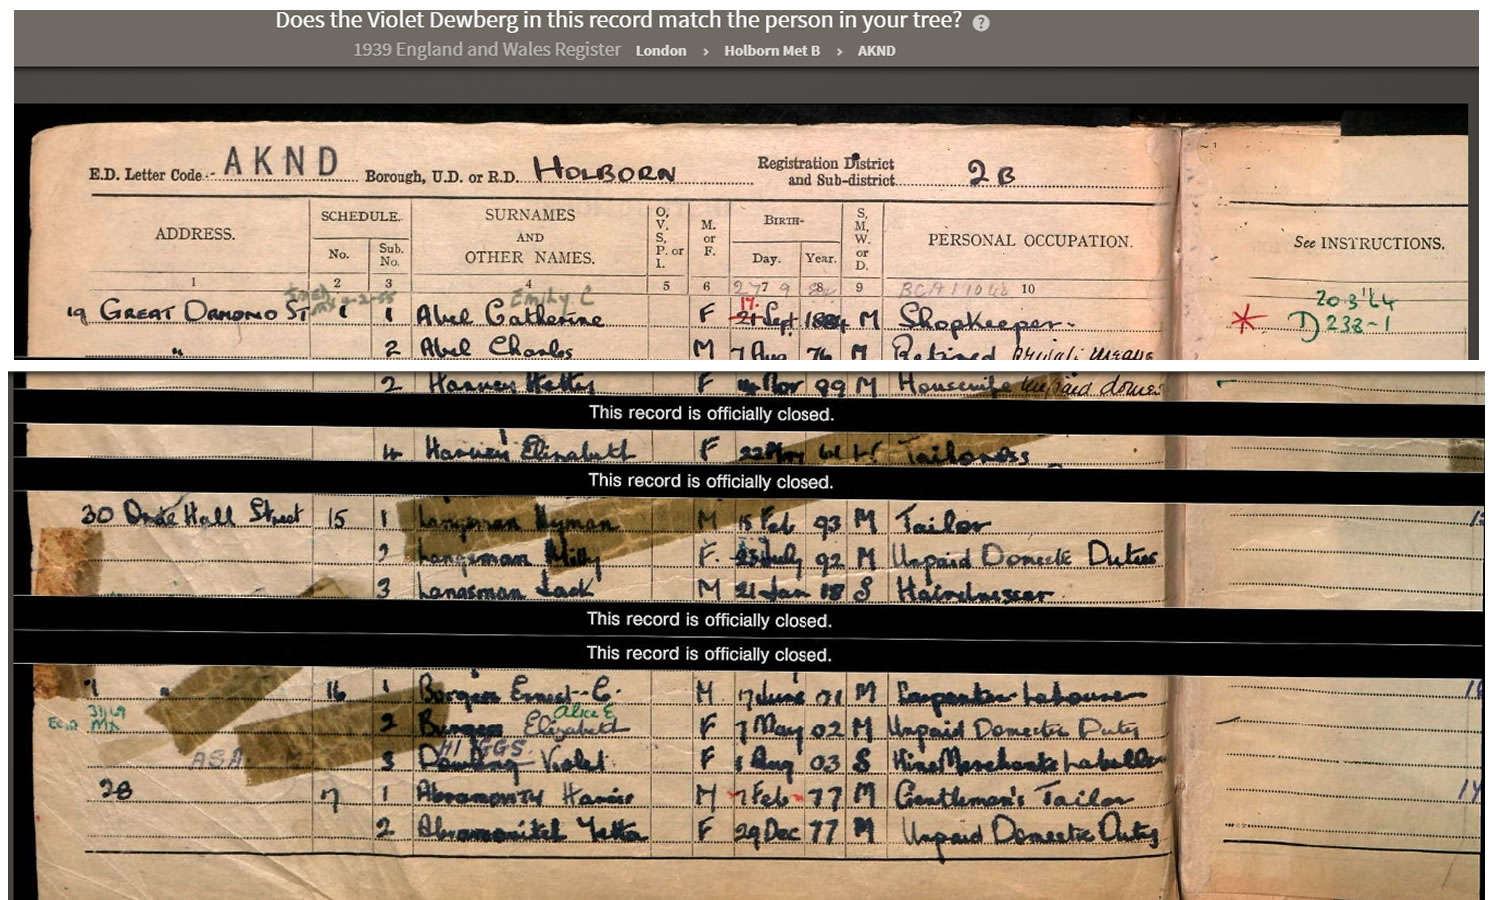 Does the Violet Dewberg in this record match the person in your tree? ?
1939 England and Wales Register London > Holborn Met B > AKND
E.D. Letter Code AKND Borough, U.D. or R.D. HOLBORN Registration District and Sub-district 2B
ADDRESS. SCHEDULE. No. Sub. No. SURNAMES AND OTHER NAMES. O, V, S, P. or I. M. or F. BIRTH- Day. Year. S, M, W. or D. PERSONAL OCCUPATION. See INSTRUCTIONS.
1 2 3 4 5 6 7 8 9 10
Emily C 20.3.'64
19 GREAT ORMOND ST 1 1 Abel Catherine F 17. Sept 1884 M Shopkeeper. * D 238-1
" 2 Abel Charles M 7 Aug 76 M Retired private means
2 Harvey Hetty F Nov 89 M Housewife unpaid domes
This record is officially closed.
4 Harvey Elizabeth F 22 Tailoress
This record is officially closed.
30 Hall Street 15 1 Langsman Hyman M 15 Feb 93 M Tailor
2 Langsman Milly F. July 92 M Unpaid Domestic Duties
3 Langsman Jack M 21 Jan 18 S Hairdresser
This record is officially closed.
This record is officially closed.
" 16 1 Ernest C. M 17 June 01 M Carpenter Labourer
Alice E
2 Elizabeth F 7 May 02 M Unpaid Domestic Duty
HIGGS
ASA 3 Violet F 1 Aug 03 S
28 17 1 Harris M 7 Feb 77 M Gentlemen's Tailor
2 Yetta F 29 Dec 77 M Unpaid Domestic Duty